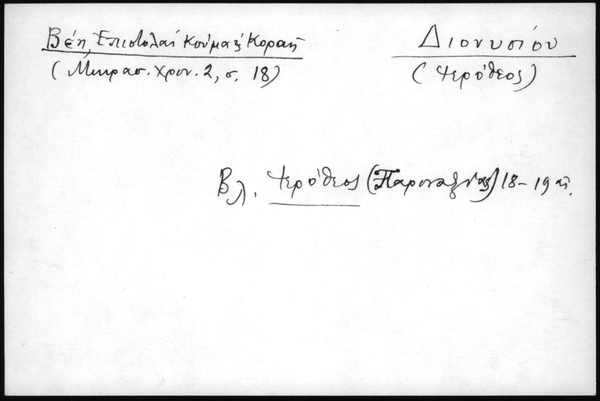 Βέη, Επιστολαί Κούμα & Κοραή
(Μικρασ. Χρον. 2, σ. 18)
Διονυσίου
(Ἱερόθεος)
Βλ. Ἱερόθεος (Παροναξίας) 18-19 αἰ.